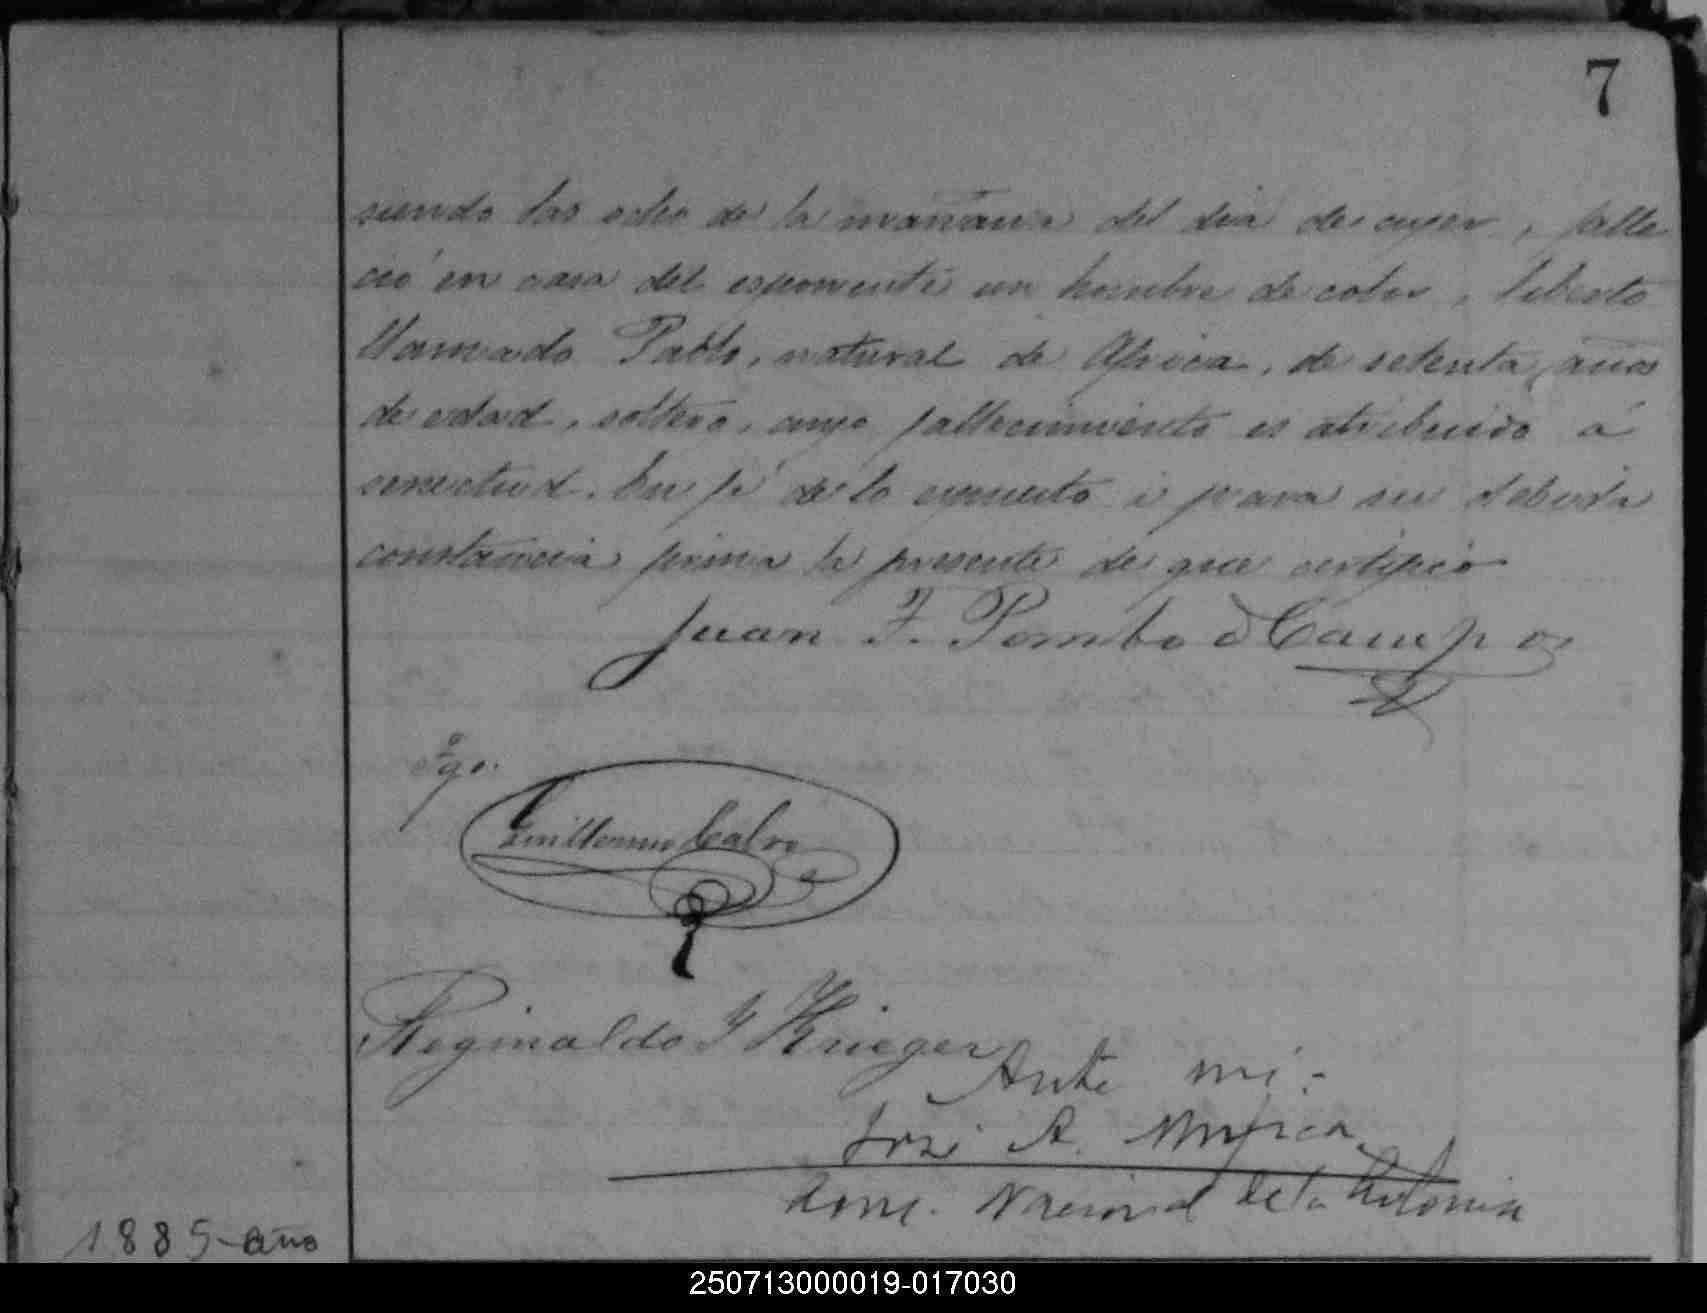 7
siendo las ocho de la mañana del dia de ayer, falle
ció en casa del esponente un hombre de color, liberto
llamado Pablo, natural de Africa, de setenta años
de edad, soltero, cuyo fallecimiento es atribuido á
senectud. En fé de lo espuesto i para su debida
constancia firma la presente de que certifico
Juan F. Pombo d Campos
Tgo.
Guillermo Calvo
Reginaldo Y Krieger
Ante mi:-
José A. Mujica
Nacional de la Colonia
1885-año
250713000019-017030